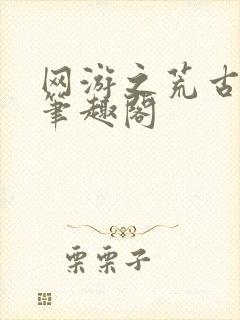 网游之荒古
筆趣阁
栗栗子